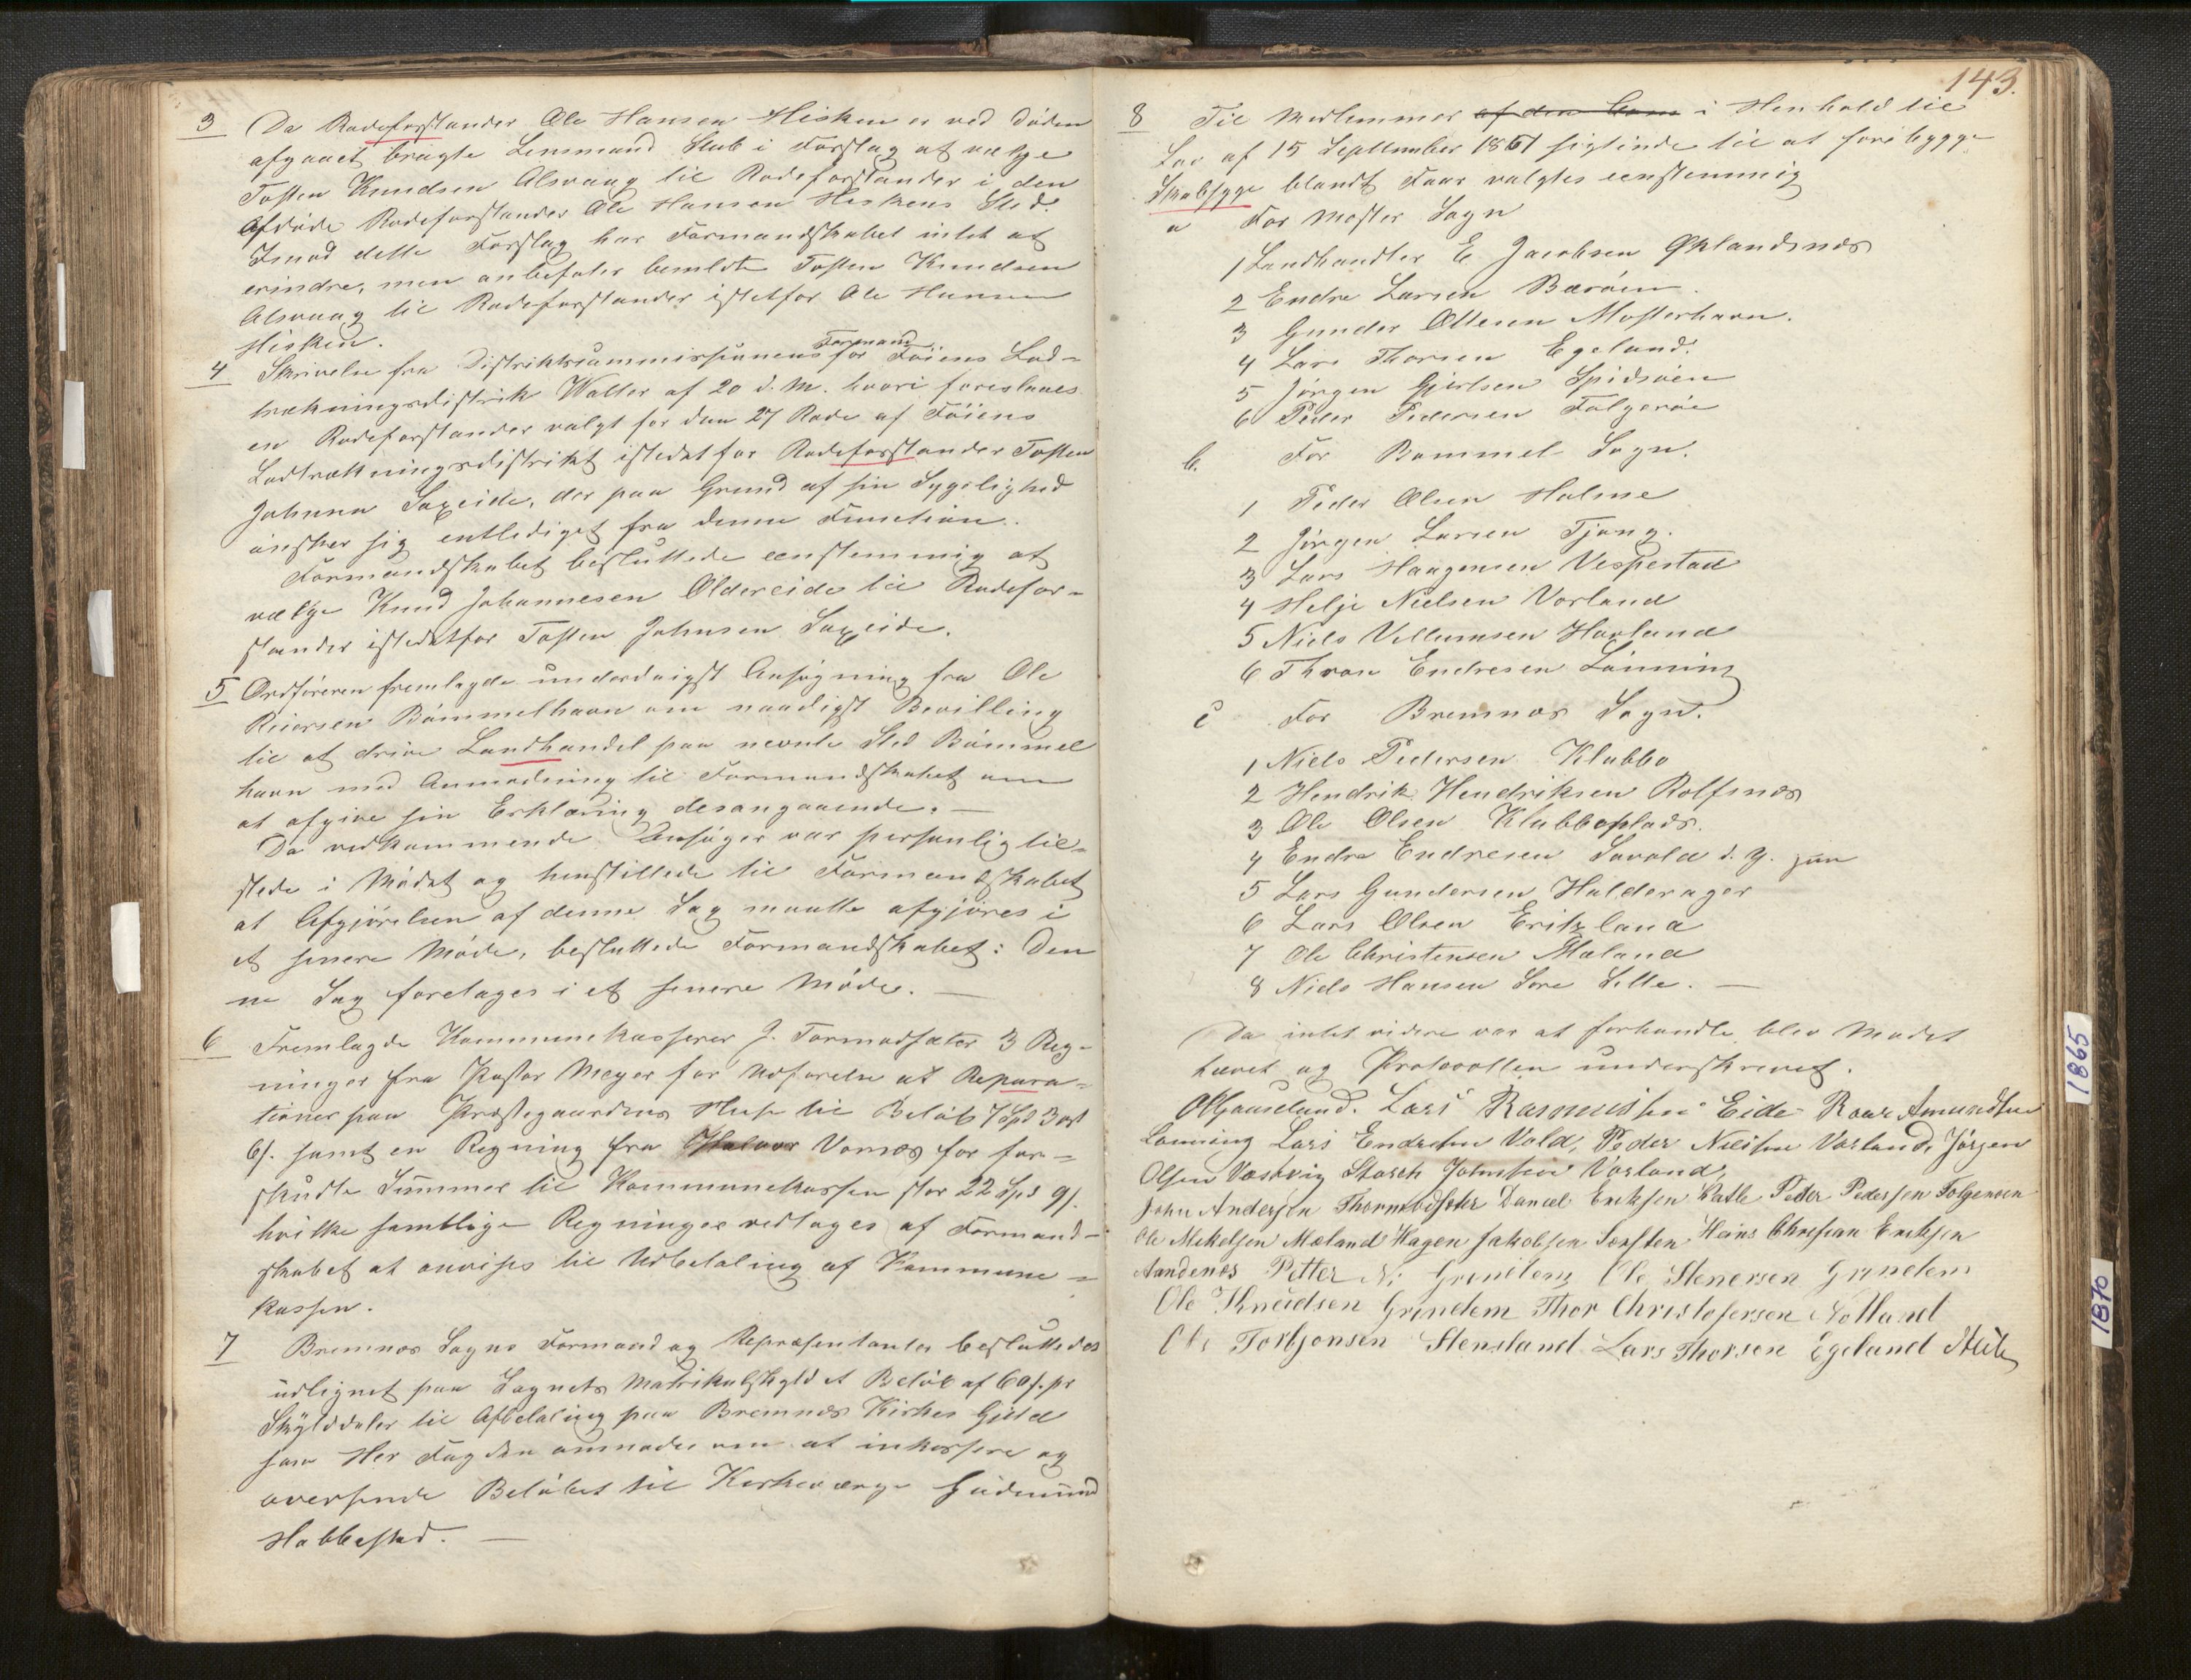 3 Da Rodeforstander Ole Hansen Hisken er ved Døden
afgaaet bragte Lensmand Stub i Forslag at vælge
Tosten Knudsen Alsvaag til Rodeforstander i den
Afdøde Rodeforstander Ole Hansen Hiskens Sted.
Imod dette Forslag har Formandskabet intet at
erindre, men anbefaler bemeldte Tosten Knudsen
Alsvaag til Rodeforstander istetfor Ole Hansen
Hisken.
4 Skrivelse fra Distriktscommissionens Formand for Føiens Lod=
trækningsdistrik Walter af 20 d. M. hvori foreslaaes
en Rodeforstander valgt for den 27 Rode af Føiens
Lodtrækningsdistrikt istedetfor Rodeforstander Tosten
Johnsen Saxeide, der paa Grund af sin Sygelighed
ønsker sig entlediget fra denne Function.
Formandskabet besluttede eenstemmig at
vælge Knud Johannesen Oldereide til Rodefor=
stander istedetfor Tosten Johnsen Saxeide.
5 Ordføreren fremlagde underdanigst Ansøgning fra Ole
Reiersen Bømmelhavn om naadigst Bevilling
til at drive Landhandel paa nævnte Sted Bømmel
havn med Anmodning til Formandskabet om
at afgive sin Erklæring desangaaende. —
Da vedkommende Ansøger var personlig til=
stede i Mødet og henstillede til Formandskabet
at Afgjørelsen af denne Sag maatte afgjøres i
et senere Møde, besluttede Formandskabet: Den
ne Sag foretages i et senere Møde. —
6 Fremlagde Kommunekasserer J. Tormodsæter 3 Reg=
ninger fra Pastor Meyer for Udførelse af Repara=
tioner paa Præstegaardens Huse til Beløb 7 Spd 3 ort
6 s. samt en Regning fra Halvor Vornæs for for=
skudte Summer til Kommunekassen stor 22 Spd 9 s.
hvilke samtlige Regninger vedtages af Formand=
skabet at anvises til Udbetaling af Kommune=
kassen.
7 Bremnes Sogns Formænd og Repræsentanter besluttedes
udlignet paa Sognets Matrikulskyld et Beløb af 60 s. pr
Skylddaler til Afbetaling paa Bremnes Kirkes Gjeld
som Her Fogden anmodes om at inkassere og
oversende Beløbet til Kirkeværge Gudmund
Habbestad. —
143.
8 Til Medlemmer af den Com i Henhold til
Lov af 15 September 1851 sigtende til at forebygge
Skabsyge blandt Faar valgtes eenstemmig
a For Moster Sogn
1 Landhandler E. Jacobsen Øklandsnæs
2 Endre Larsen Børøen.
3 Gunder Ottesen Mosterhavn.
4 Lars Thorsen Egeland.
5 Jørgen Gjertsen Spidsøen
6 Peder Pedersen Folgerøe
b. For Bømmel Sogn.
1 Peder Olsen Holme
2 Jørgen Larsen Tjong.
3 Lars Haagensen Vespestad
4 Helje Nielsen Vorland
5 Niels Villumsen Hovland
6 Thron Endresen Lønning
c For Bremnæs Sogn.
1 Niels Pedersen Klubbo
2 Hendrik Hendriksen Rolfsnæs
3 Ole Olsen Klubboplads.
4 Endre Endresen Svvold d. y.
5 Lars Gundersen Halderager
6 Lars Olsen Eritzland
7 Ole Christensen Mæland
8 Niels Hansen Søre Lille. —
Da intet videre var at forhandle blev Mødet
hævet og Protocollen underskrevet.
Lars Rasmussen Eide Roar Amundsen
Lønning Lars Endresen Vold, Peder Nielsen Vorland, Jørgen
Olsen Vestvig Storch Johnsen Vorland,
John Andersen Thormodsæter Daniel Eriksen Katle Peder Pedersen Folgerøen
Ole Mikelsen Mæland Hagen Jakobsen Sørsten Hans Christian Eriksen
Aandenes Petter N: Grindem Ole Stenersen Grindem
Ole Knudsen Grindem Thor Christofersen Nølland
Ole Torbjønsen Stensland Lars Thorsen Egeland
1865
1870